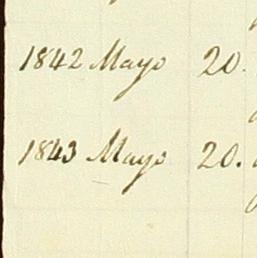 1842 Mayo 20.
1843 Mayo 20.